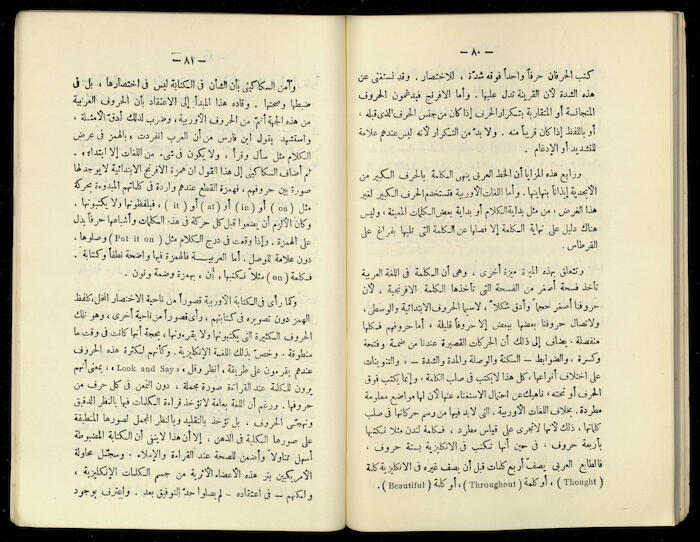 — ٨٠ —
كتب الحرفان حرفاً واحداً فوقه شدّة ، للاختصار . وقد نستغنى عن
هذه الشدة لأن القرينة تدل عليها . وأما الافرنج فيدغمون الحروف
المتجانسة أو المتقاربة بتكرار الحرف إذا كان من جنس الحرف الذى قبله ،
أو باللفظ إذا كان قريباً منه . ولا بدّ من التكرار لأنه ليس عندهم علامة
للتشديد أو الإدغام .
ورابع هذه المزايا أن الخط العربى ينهى الكلمة بالحرف الكبير من
الأبجدية إيذاناً بنهايتها . وأما اللغات الأوربية فتستخدم الحرف الكبير لغير
هذا الغرض ، من مثل بداية الكلام أو بداية بعض الكلمات المعينة ، وليس
هناك دليل على نهاية الكلمة إلا فصلها عن الكلمة التى تليها بفراغ على
القرطاس .
وتتعلق بهذه الميزة ميزة أخرى ، وهى أن الكلمة فى اللغة العربية
تأخذ فسحة أصغر من الفسحة التى تأخذها الكلمة الافرنجية . لأن
حروفنا أصغر حجماً وأدق شكلاً ، لاسيما الحروف الابتدائية والوسطى ،
ولاتصال حروفنا بعضها ببعض إلا حروفاً قليلة ، أما حروفهم فكلها
منفصلة . يضاف إلى ذلك أن الحركات القصيرة عندنا من ضمة وفتحة
وكسرة ، والضوابط — السكتة والوصلة والمدة والشدة — ، والتنوينات
على اختلاف أنواعها ، كل هذا لا يكتب فى صلب الكلمة ، وإنما يكتب فوق
الحرف أو تحته ، ناهيك عن احتمال الاستغناء عنها لأن لها مواضع معلومة
مطردة . بخلاف اللغات الأوربية ، التى لابد فيها من رسم حركاتها فى صلب
كلماتها ، ذلك لأنها لاتجرى على قياس مطرد . فكلمة لندن مثلا نكتبها
بأربعة حروف ، فى حين أنها تكتب فى الانكليزية بستة حروف ،
فالطابع العربى يصفّ أربع كلمات قبل أن يصف غيره فى الانكليزية كلمة
( Thought ) ، أو كلمة ( Throughout ) ، أو كلمة ( Beautiful ) .
— ٨١ —
وآمن السكاكينى بأن الشأن فى الكتابة ليس فى اختصارها ، بل فى
ضبطها وصحتها . وقاده هذا المبدأ إلى الاعتقاد بأن الحروف العربية
من هذه الجهة أتمّ من الحروف الأوربية ، وضرب لذلك أدقّ الأمثلة ،
واستشهد بقول ابن فارس من أن العرب انفردت بالهمز فى عرض
الكلام مثل سأل وقرأ ، ولا يكون فى شىء من اللغات إلا ابتداء .
ثم أضاف السكاكينى إلى هذا القول ان همزة الافرنج الابتدائية لا يوجد لها
صورة بين حروفهم ، فهمزة القطع عندهم واردة فى كلماتهم المبدوءة بحركة
مثل ( on ) أو ( in ) أو ( at ) أو ( it ) ، فيلفظونها ولا يكتبونها .
وكان الألزم أن يضعوا قبل كل حركة فى هذه الكلمات وأشباهها حرفاً يدل
على الهمزة . وإذا وقعت فى درج الكلام مثل ( Put it on ) وصلوها ،
دون علامة للوصل . أما العربية فالهمزة فيها واضحة نطقاً وكتابة .
فكلمة ( on ) مثلاً نكتبها ، أُن ، بهمزة وضمة ونون .
وكما رأى فى الكتابة الأوربية قصوراً من ناحية الاختصار المخل، كلفظ
الهمز دون تصويره فى كتابتهم ، رأى قصوراً من ناحية أخرى ، وهو تلك
الحروف الكثيرة التى يكتبونها ولا يقرءونها ، بحجة أنها كانت فى وقت ما
منطوقة . وخصّ بذلك اللغة الإنكليزية . وكأنهم لكثرة هذه الحروف
عندهم يقرءون على طريقة « انظر وقل » « Look and Say » ، بمعنى أنهم
يرون للكلمة عند القراءة صورة مجملة ، دون التمعن فى كل حرف من
حروفها . ورغم أن اللغة بعامة لاتؤخذ قراءة الكلمات فيها بالنظر الدقيق
وتهجّى الحروف ، بل تؤخذ بالتقليد وبالنظر المجمل لصورها المنطبقة
على صورها الكلية فى الذهن ، إلا أن هذا لا ينفى أن الكتابة المضبوطة
أسهل تناولاً وأضمن للصحة عند القراءة والإملاء . وسجّل محاولة
الأمريكيين بتر هذه الأعضاء الأثرية من جسم الكلمات الإنكليزية ،
ولكنهم — فى اعتقاده — لم يصلوا حدّ التوفيق بعد . واعترف بوجود